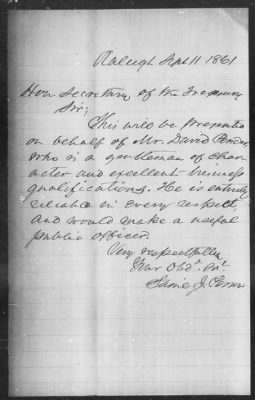 Raleigh Sept 11 1861
Hon Secretary of the Treasury
Sir;
This will be presented
on behalf of Mr. David
who is a gentleman of char
acter and excellent business
qualifications. He is entirely
reliable in every respect
and would make a useful
public officer.
Very respectfully
Your Obdt. Svt.
J.